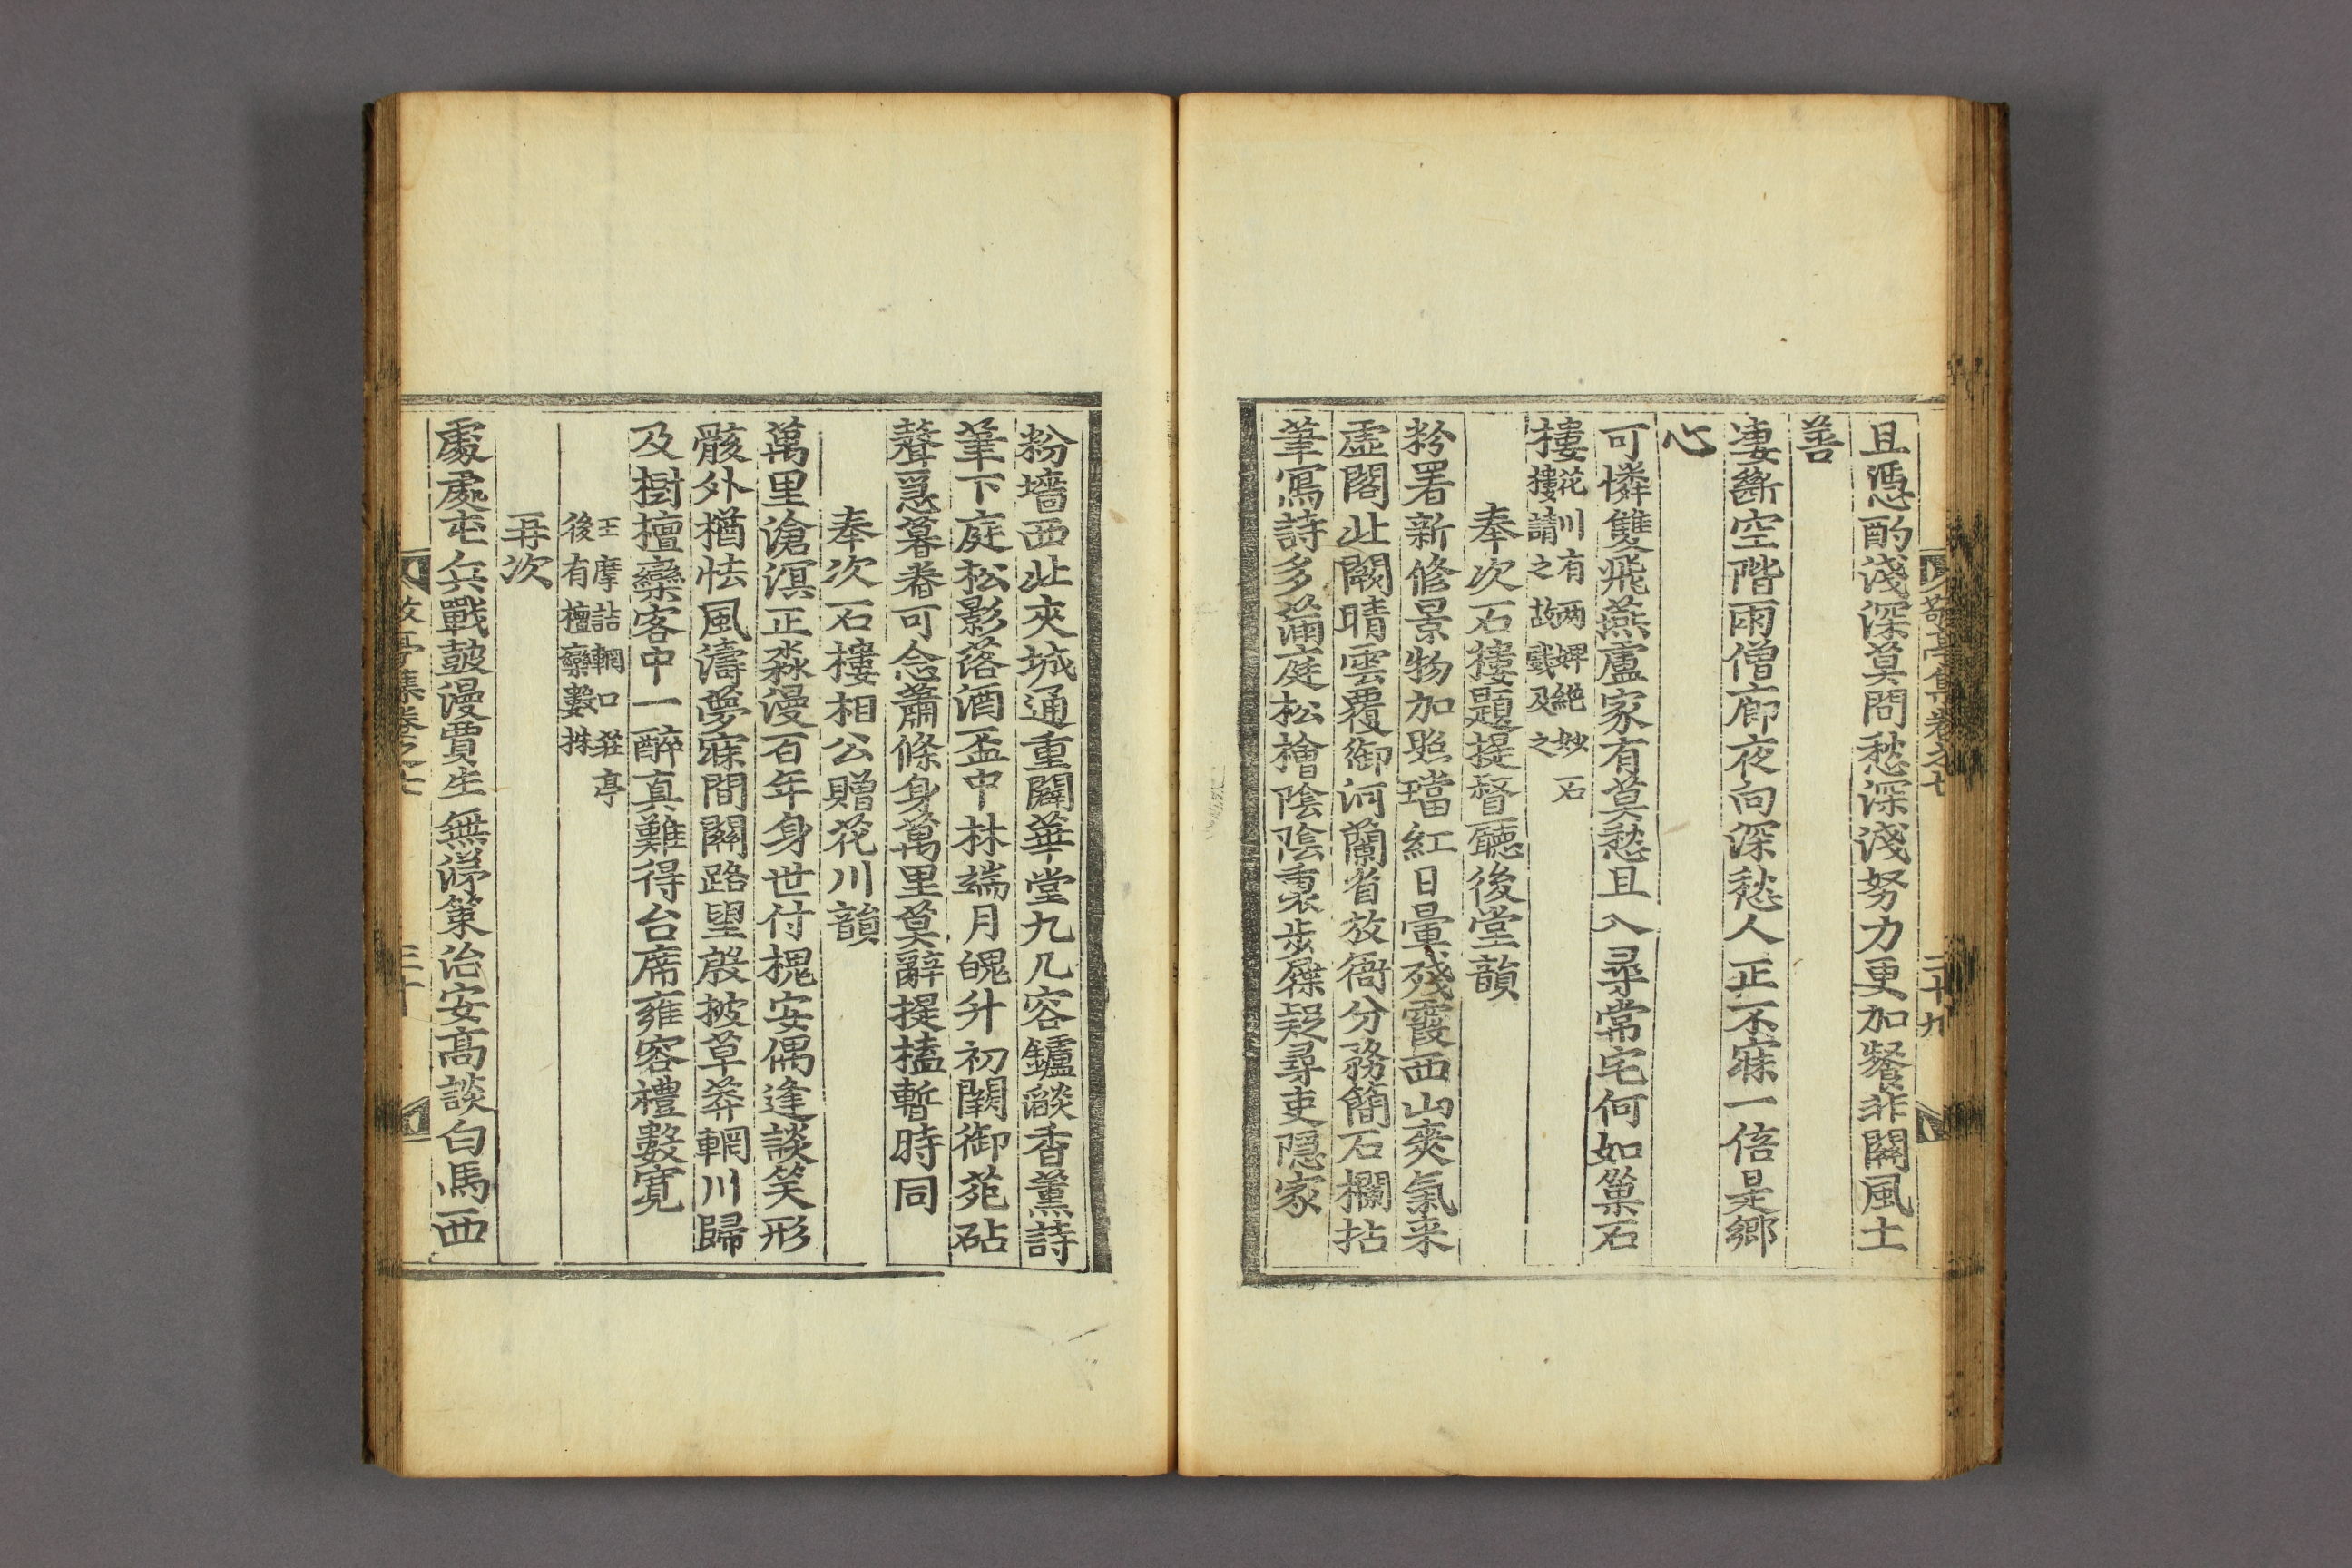 敬亭集卷之七
二十九
且憑酌淺深莫問愁深淺努力更加餐非關風土
善
凄斷空階雨僧廊夜向深愁人正不寐一倍是鄉
心
可憐雙飛燕盧家有莫愁且入尋常宅何如巢石
樓花川有兩婢絶妙石
樓請之故戲及之
奉次石樓題提督廳後堂韻
粉署新修景物加照璫紅日暈殘霞西山爽氣来
虛閣北闕晴雲覆御河蘭省放衙分務簡石欄拈
筆寫詩多滿庭松檜陰陰裏步屧疑尋吏隱家
粉墻西北夾城通重闢華堂九几容鑪燄香薰詩
筆下庭松影落酒盃中林端月魄升初闕御苑砧
聲急暮春可念蕭條身萬里莫辭提榼暫時同
奉次石樓相公贈花川韻
萬里滄溟正淼漫百年身世付槐安偶逢談笑形
骸外猶怯風濤夢寐間關路望殷披草莽輞川歸
及樹檀欒客中一醉真難得台席雍容禮數寬
王摩詰輞口莊亭
後有檀欒數株
再次
處處屯兵戰皷漫賈生無涕策治安高談白馬西
敬亭集卷之七
三十